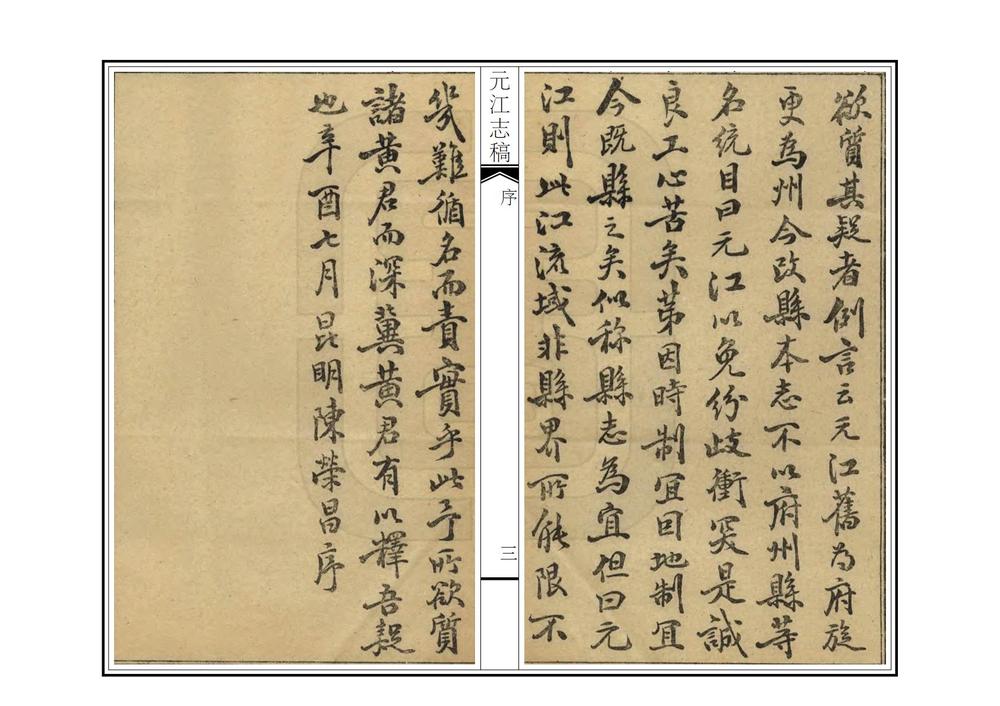 欲質其疑者例言云元江舊為府旋
更為州今改縣本志不以府州縣等
名統目曰元江以免紛歧衝突是誠
良工心苦矣第因時制宜因地制宜
今既縣之矣似称縣志為宜但曰元
江則此江流域非縣界所能限不
元江志稿
序
三
幾難循名而責實乎此予所欲質
諸黃君而深冀黃君有以釋吾疑
也辛酉七月昆明陳榮昌序